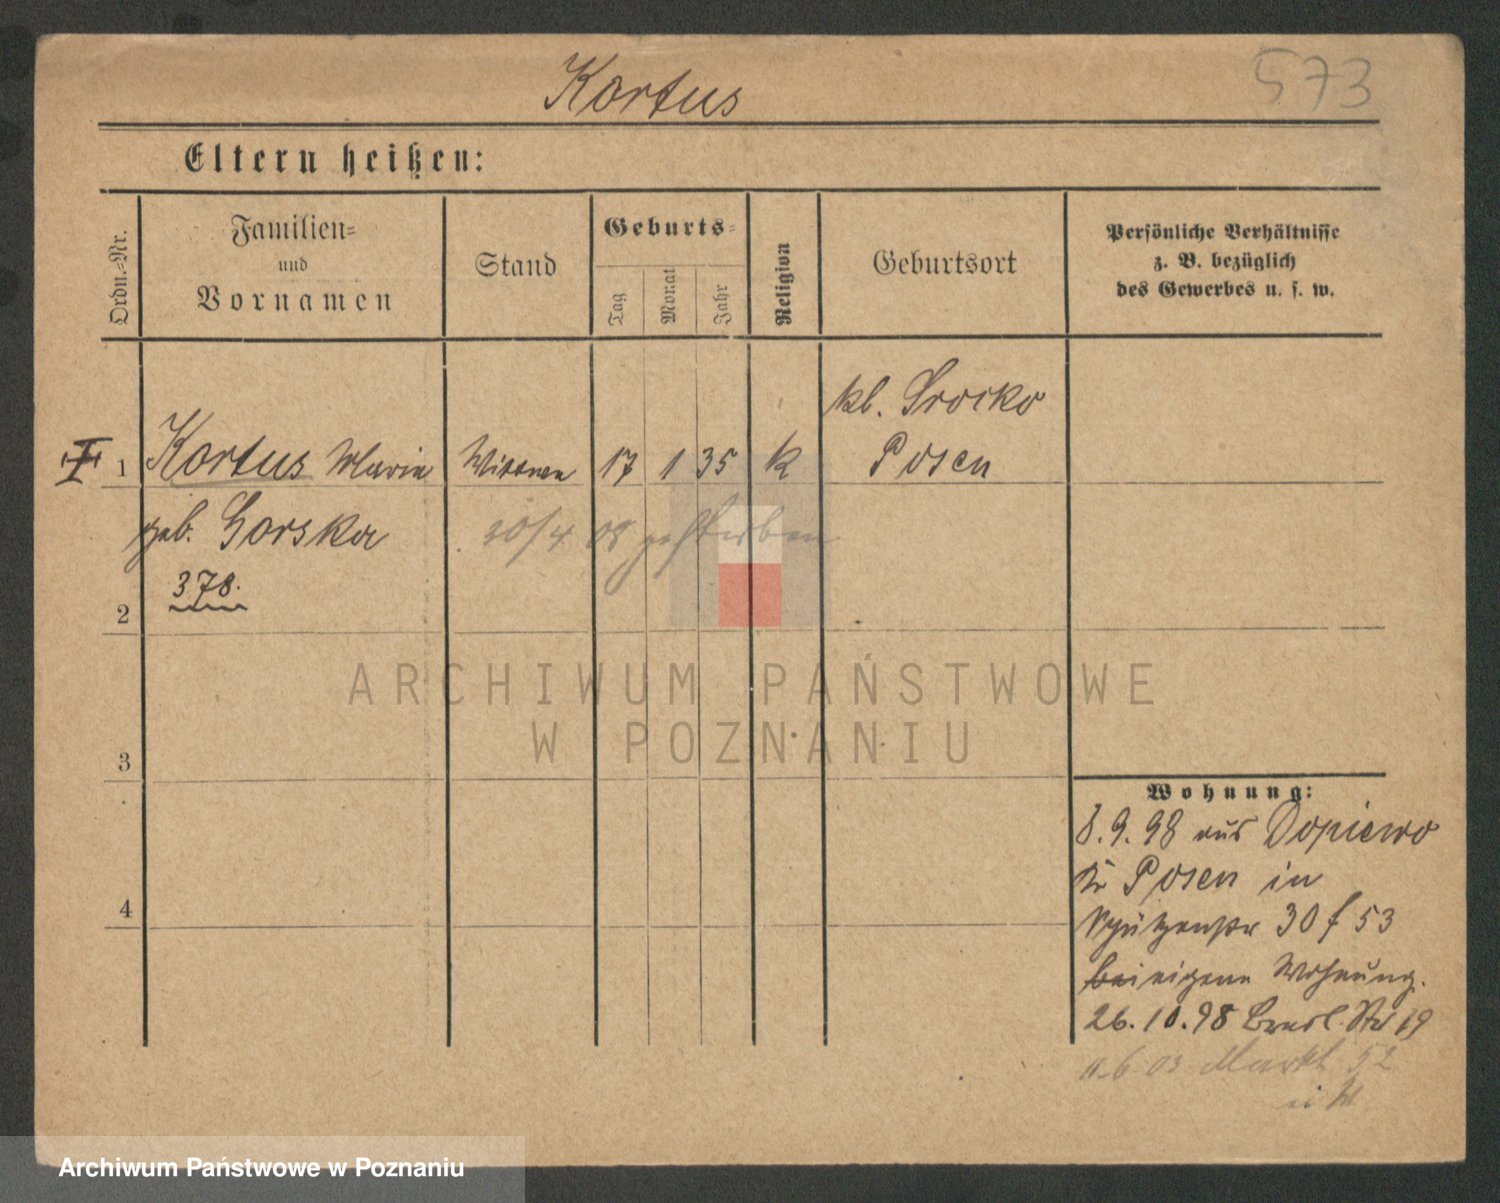 Kortus
573
Eltern heißen:
Ordn.=Nr.
Familien=
und
Vornamen
Stand
Geburts=
Tag
Monat
Jahr
Religion
Geburtsort
Persönliche Verhältnisse
z. B. bezüglich
des Gewerbes u. s. w.
kl. Srocko
I 1 Kortus Maria Wittwe 17 1 35 K Posen
geb. Gorska 30/4 08 gestorben
378.
2
ARCHIWUM PAŃSTWOWE
W POZNANIU
3
Wohnung:
8.9.98 aus Dopiewo
Kr Posen in
Schützenstr 30 f 53
bei eigene Wohnung.
26.10.98 Bresl. Str 19
11.6 03 Markt 52
4
Archiwum Państwowe w Poznaniu